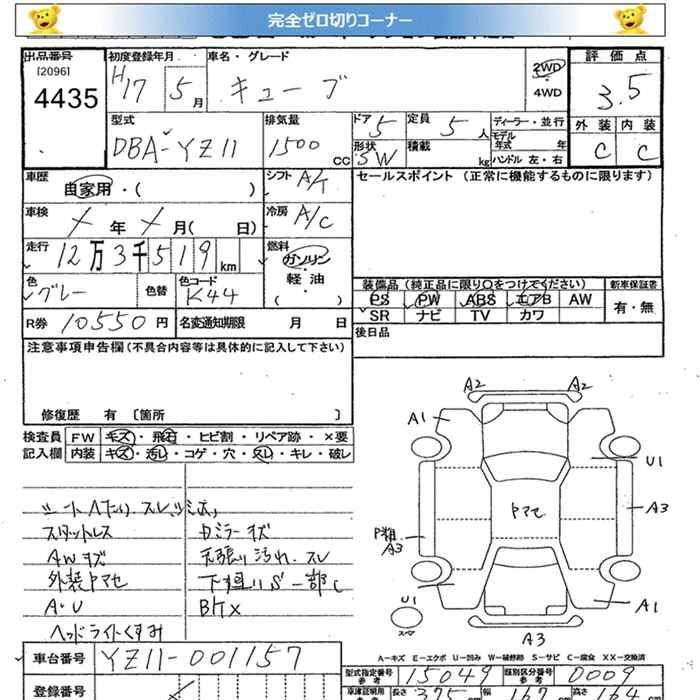 完全ゼロ切りコーナー
出品番号 初度登録年月 車名・グレード 評価点
[2096] 4435 H17 5月 キューブ 2WD・4WD 3.5
型式 排気量 ドア 定員 ディーラー・並行 外装 内装
DBA-YZ11 1500cc 5 5人 モデル年式 年 C C
形状 SW 積載 kg ハンドル 左・右
車歴 自家用・( ) シフト A/T セールスポイント (正常に機能するものに限ります)
車検 年 月( 日) 冷房 A/C
走行 12万3千519km 燃料 ガソリン・軽油・( )
色 グレー 色替 色コード K44
装備品(純正品に限り○をつけてください) 新車保証書
PS PW ABS エアB AW 有・無
SR ナビ TV カワ
R券 10550円 名変通知期限 月 日 後日品
注意事項申告欄(不具合内容等は具体的に記入して下さい)
修復歴 有 〔箇所 〕
検査員 FW キズ・飛石・ヒビ割・リペア跡・×要
記入欄 内装 キズ・汚レ・コゲ・穴・スレ・キレ・破レ
シートヘたり、スレ、シミ大
スタットレス カミラーキズ
AWキズ 天張り汚れ、スレ
外装Pマセ 下廻りS一部C
A・U Bケ×
ヘッドライトくすみ
A2 A2
A1 U1
Pマセ
A3
P粗
A3
U1
スペア
A1
A3
A-キズ E-エクボ U-凹み W-補修跡 S-サビ C-腐食 XX-交換済
車台番号 YZ11-001157
型式指定番号 参考 15049 類別区分番号 参考 0009
登録番号
車庫証明用 長さ 375cm 幅 167cm 高さ 164cm